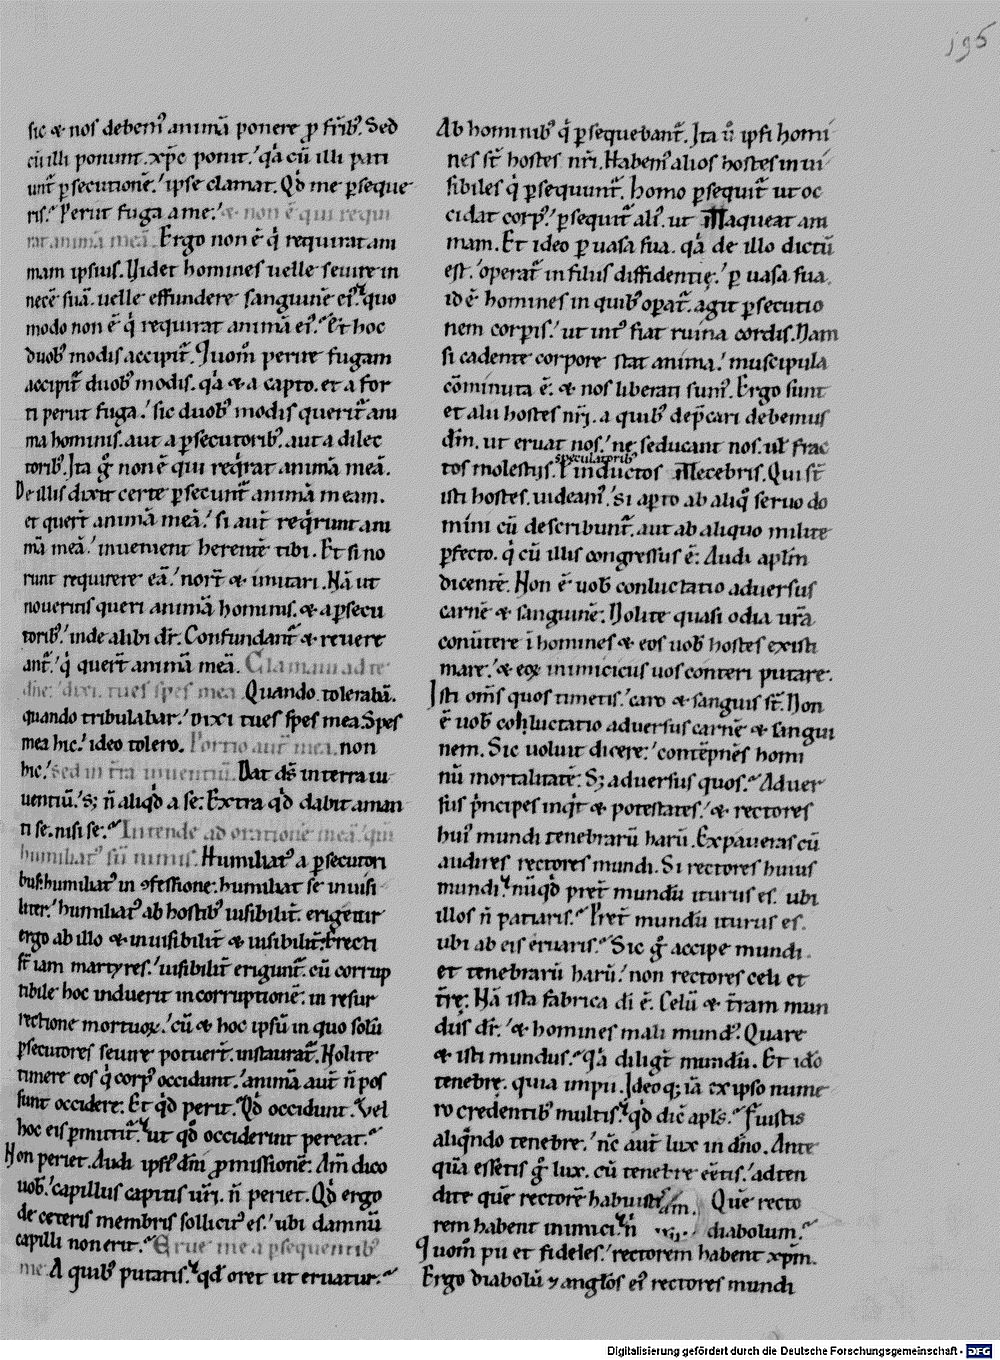 195
sic & nos debem᷒ animā ponere ꝓ fr̄ib᷒. Sed
cū illi ponunt. xp̄c ponit.' q̇a cū illi pati
unt᷒ ꝑsecutionē.' ipse clamat. Qd̄ me ꝑseque
ris.' Periit fuga a me.' & non ē qui requi
rat animā meā. Ergo non ē q̇ requirat ani
mam ipsius. Videt homines uelle seuire in
necē suā. uelle effundere sanguinē ei᷒. quo
modo non ē q̇ requirat animā ei᷒. Et hoc
duob᷒ modis accipit᷒. Quom̄ perire fugam
accipit᷒ duob᷒ modis. q̇a & a capto. et a for
ti perit fuga.' sic duob᷒ modis querit᷒ ani
ma hominis. aut a ꝑsecutorib᷒. aut a dilec
torib᷒. Ita g̊ non ē qui req̇rat animā meā.
De illis dixit certe ꝑsecunt᷒ animā meam.
et quer̄t animā meā.' si aut̄ req̇runt ani
mā meā.' inuenient herentē tibi. Et si no
runt requirere eā.' nor̄t & imitari. Nā ut
noueritis queri animā hominis. & a ꝑsecu
torib᷒.' inde alibi dr̄. Confundant᷒ & reuere
ant᷒.' q̇ quer̄t animā meā. Clamaui ad te
dn̄e.' dixi. tu es spes mea. Quando tolerabā.
quando tribulabar.' dixi tu es spes mea. Spes
mea hic.' ideo tolero. Portio aut̄ mea. non
hic.' sed in tr̄a uiuentiū. Dat ds̄ in terra ui
uentiū.' sꝫ n̄ aliq̇d a se. Extra qd̄ dabit aman
ti se. nisi se. Intende ad orationē meā. quia
humiliat᷒ sū nimis. Humiliat᷒ a ꝑsecutori
bus. humiliat᷒ in ꝯfessione. humiliat se inuisi
liter.' humiliat᷒ ab hostib᷒ uisibilit̄. erigetur
ergo ab illo & inuisibilit̄ & uisibilit̄. Erecti
st̄ iam martyres.' uisibilit̄ erigunt᷒. cū corrup
tibile hoc induerit incorruptionē. in resur
rectione mortuoꝝ.' cū & hoc ipsū in quo solū
ꝑsecutores seuire potuer̄t. instaurat᷒. Nolite
timere eos q̇ corp᷒ occidunt.' animā aut̄ n̄ pos
sunt occidere. Et qd̄ perit. Qd̄ occidunt. Vel
hoc eis ꝑmittit᷒. ut qd̄ occiderint pereat.
Non periet. Audi ipsi᷒ dn̄i ꝓmissionē. Am̄ dico
uob᷒.' capillus capitis ur̄i. n̄ periet. Qd̄ ergo
de ceteris membris sollicit᷒ es.' ubi damnū
capilli non erit. Erue me a ꝑsequentib᷒
me. A quib᷒ putatis. qd̄ oret ut eruatur.
Ab hominib᷒ q̇ ꝑsequebant᷒. Ita u̇ ipsi homi
nes st̄ hostes nr̄i. Habem᷒ alios hostes inui
sibiles q̇ ꝑsequunt᷒. homo ꝑsequit᷒ ut oc
cidat corp᷒.' ꝑsequit᷒ ali᷒. ut illaqueat ani
mam. Et ideo ꝑ uasa sua. q̇a de illo dictū
est.' operat᷒ in filiis diffidentię.' ꝑ uasa sua.
id ē homines in quib᷒ oꝑat᷒. agit ꝑsecutio
nem corꝑis.' ut int᷒ fiat ruina cordis. Nam
si cadente corpore stat anima.' muscipula
cōminuta ē. & nos liberati sum᷒. Ergo sunt
et alii hostes nr̄i. a quib᷒ dep̄cari debemus
dm̄. ut eruat nos.' ne seducant nos. ul̄ frac
speculatorib᷒
tos molestijs. l̄ inductos illecebris. Qui st̄
isti hostes. uideam᷒.' si aꝑto ab aliq̇ seruo do
mini cū describunt᷒. aut ab aliquo milite
ꝑfecto. q̇ cū illis congressus ē. Audi apl̄m
dicentē. Non ē uob᷒ conluctatio aduersus
carnē & sanguinē. Nolite quasi odia ur̄a
conūtere ī homines & eos uob᷒ hostes existi
mare.' & eoꝝ inimiciciis uos conteri putare.
Isti om̄s quos timetis.' caro & sanguis st̄. Non
ē uob᷒ cohluctatio aduersus carnē & sangui
nem. Sic uoluit dicere.' contēpnēs homi
nū mortalitatē. Sꝫ aduersus quos. Aduer
sus p̄ncipes inq̇t & potestates.' & rectores
hui᷒ mundi tenebrarū harū. Expaueras cū
audires rectores mundi. Si rectores huius
mundi. nūqd̄ pret̄ mundū iturus es. ubi
illos n̄ patiaris. Pret̄ mundū iturus es.
ubi ab eis eruaris. Sic g̊ accipe mundi.
et tenebrarū harū.' non rectores celi et
tr̄ę. Nā ista fabrica di ē. Celū & tr̄am mun
dus dr̄.' & homines mali mund᷒. Quare
& isti mundus. Q̇a diligt̄ mundū. Et ido
tenebrę. quia impii. Ideoqꝫ iā ex ipso nume
ro credentib᷒ multis. qd̄ dic̄ apl̄s. Fuistis
aliq̇ndo tenebre.' nc̄ aut̄ lux in dn̄o. Ante
quā essetis g̊ lux. cū tenebre eētis.' adten
dite quē rectorē habuistis Quē recto
rem habent inimici. n̄ diabolum.
Quom̄ pii et fideles.' rectorem habent xpm̄.
Ergo diabolū ⁊ anglōs ei᷒ rectores mundi
Digitalisierung gefördert durch die Deutsche Forschungsgemeinschaft - DFG